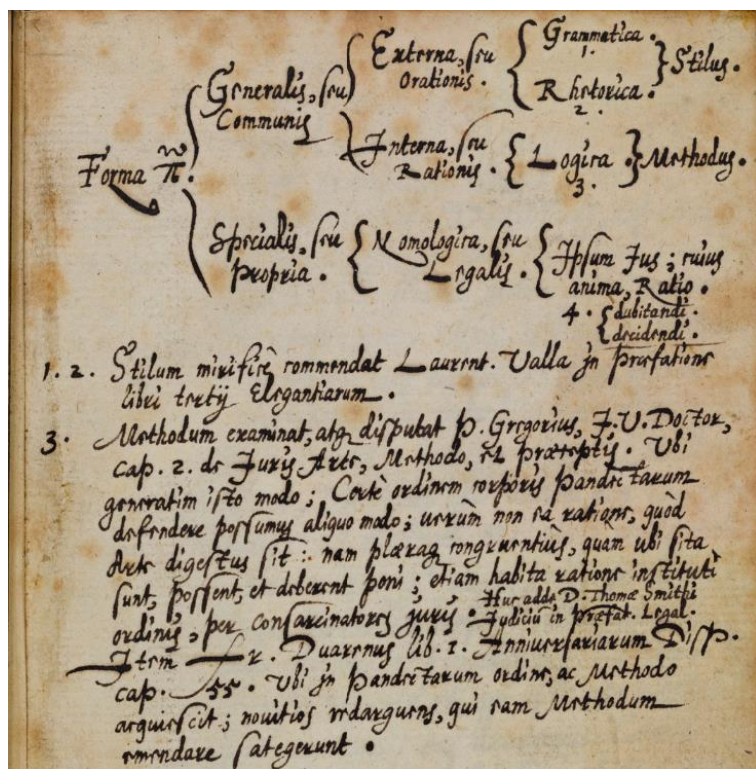 Grammatica.
1.
Externa, seu
Orationis.
Stilus.
Generalis, seu
Communis
Rhetorica.
2.
Interna, seu
Rationis.
Logica.
3.
Methodus.
Forma π̃.
Specialis, seu
Propria.
Nomologica, seu
Legalis.
Ipsum Jus; cuius
anima, Ratio.
4. dubitandi.
decidendi.
1. 2. Stilum mirificè commendat Laurent. Valla in Præfatione
libri tertij Elegantiarum.
3. Methodum examinat, atq; disputat P. Gregorius, J. V. Doctor,
cap. 2. de Juris Arte, Methodo, et Præceptis. Ubi
generatim isto modo; Certè ordinem corporis Pandectarum
defendere possumus aliquo modo; uerùm non ea ratione, quòd
Arte digestus sit: nam plæraq; congruentiùs, quàm ubi sita
sunt, possent, et deberent poni; etiam habita ratione instituti
ordinis, per consarcinatores juris. Huc adde D. Thomæ Smithi
Judiciu in Præfat. Legal.
Item Fr. Duarenus lib. 1. Anniuersariarum Disp.
cap. 55. Ubi in Pandectarum ordine, ac Methodo
acquiescit; nouitios redarguens, qui eam Methodum
emendare sategerunt.